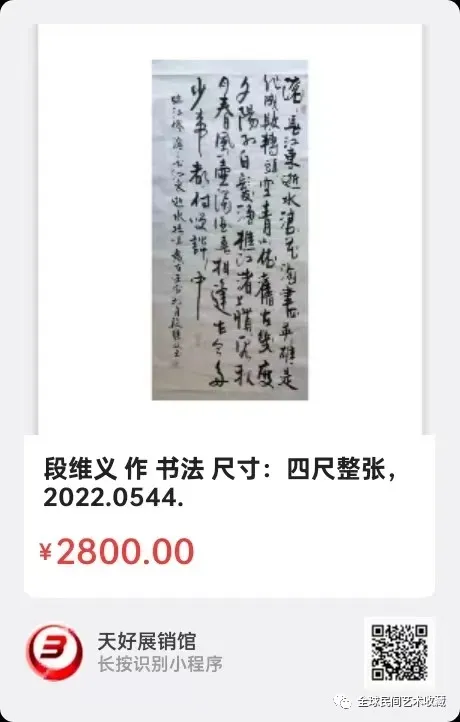 滚滚長江東逝水浪花淘盡英雄是
非成敗轉頭空青山依舊在幾度
夕陽紅白髮漁樵江渚上慣看秋
月春風一壺濁酒喜相逢古今多
少事都付笑談中
段维义 作 书法 尺寸：四尺整张，
2022.0544.
¥2800.00
天好展销馆
长按识别小程序
全球民间艺术收藏